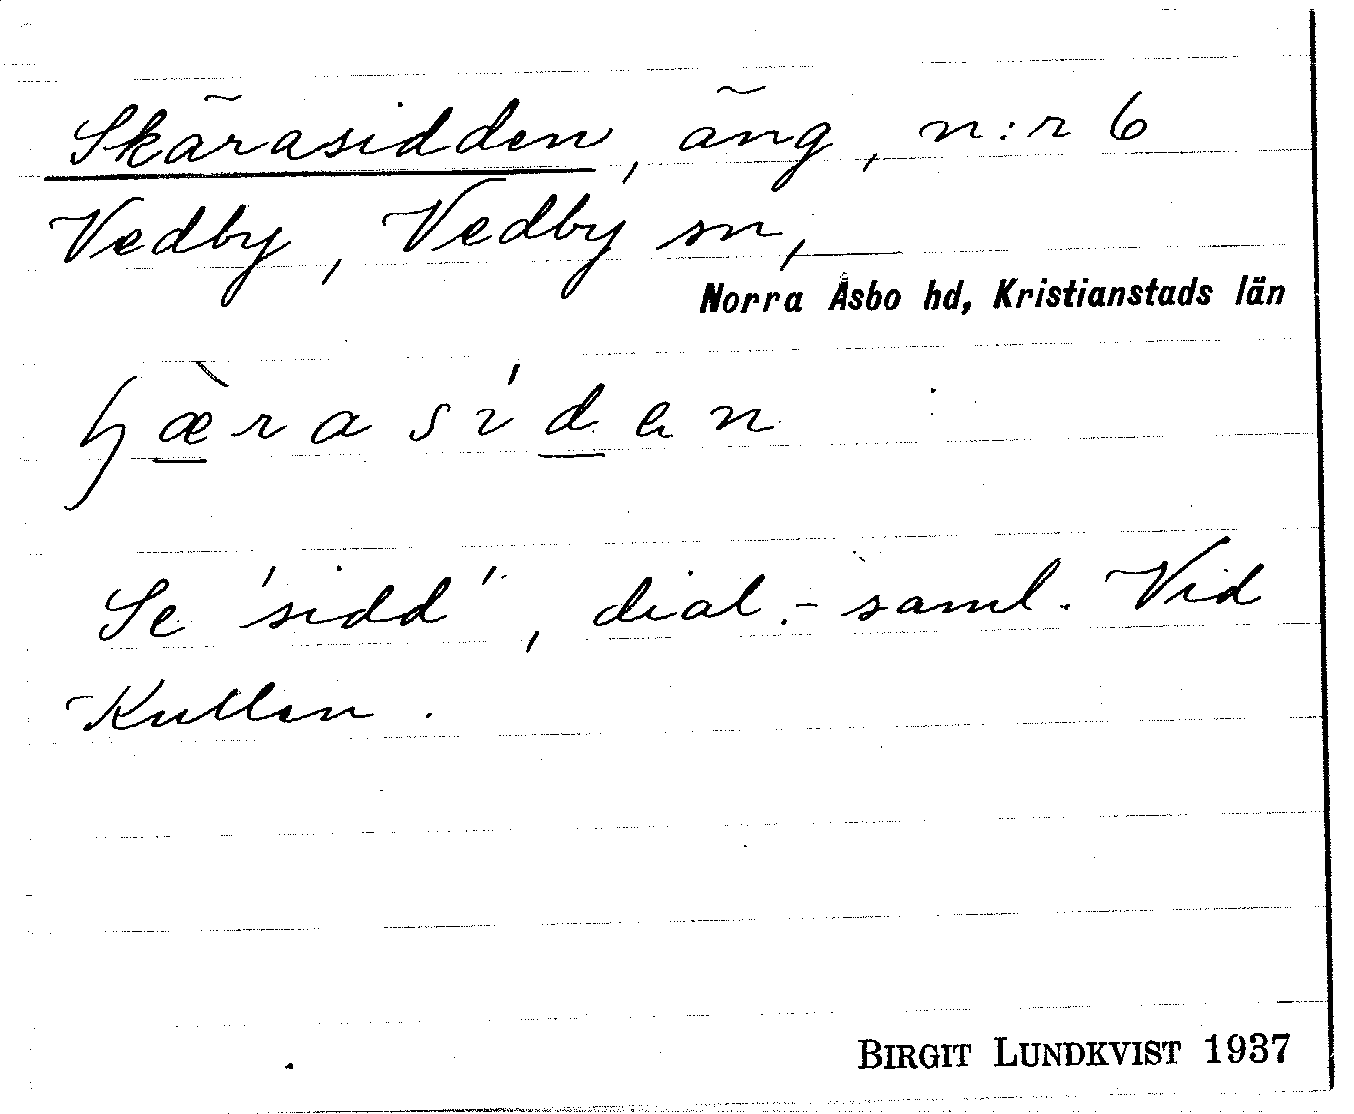 Skärasidden, äng, n:r 6
Vedby, Vedby sn,
Norra Åsbo hd, Kristianstads län
ɧæ̀rasíden
Se 'sidd', dial.-saml. Vid
Kullen.
BIRGIT LUNDKVIST 1937